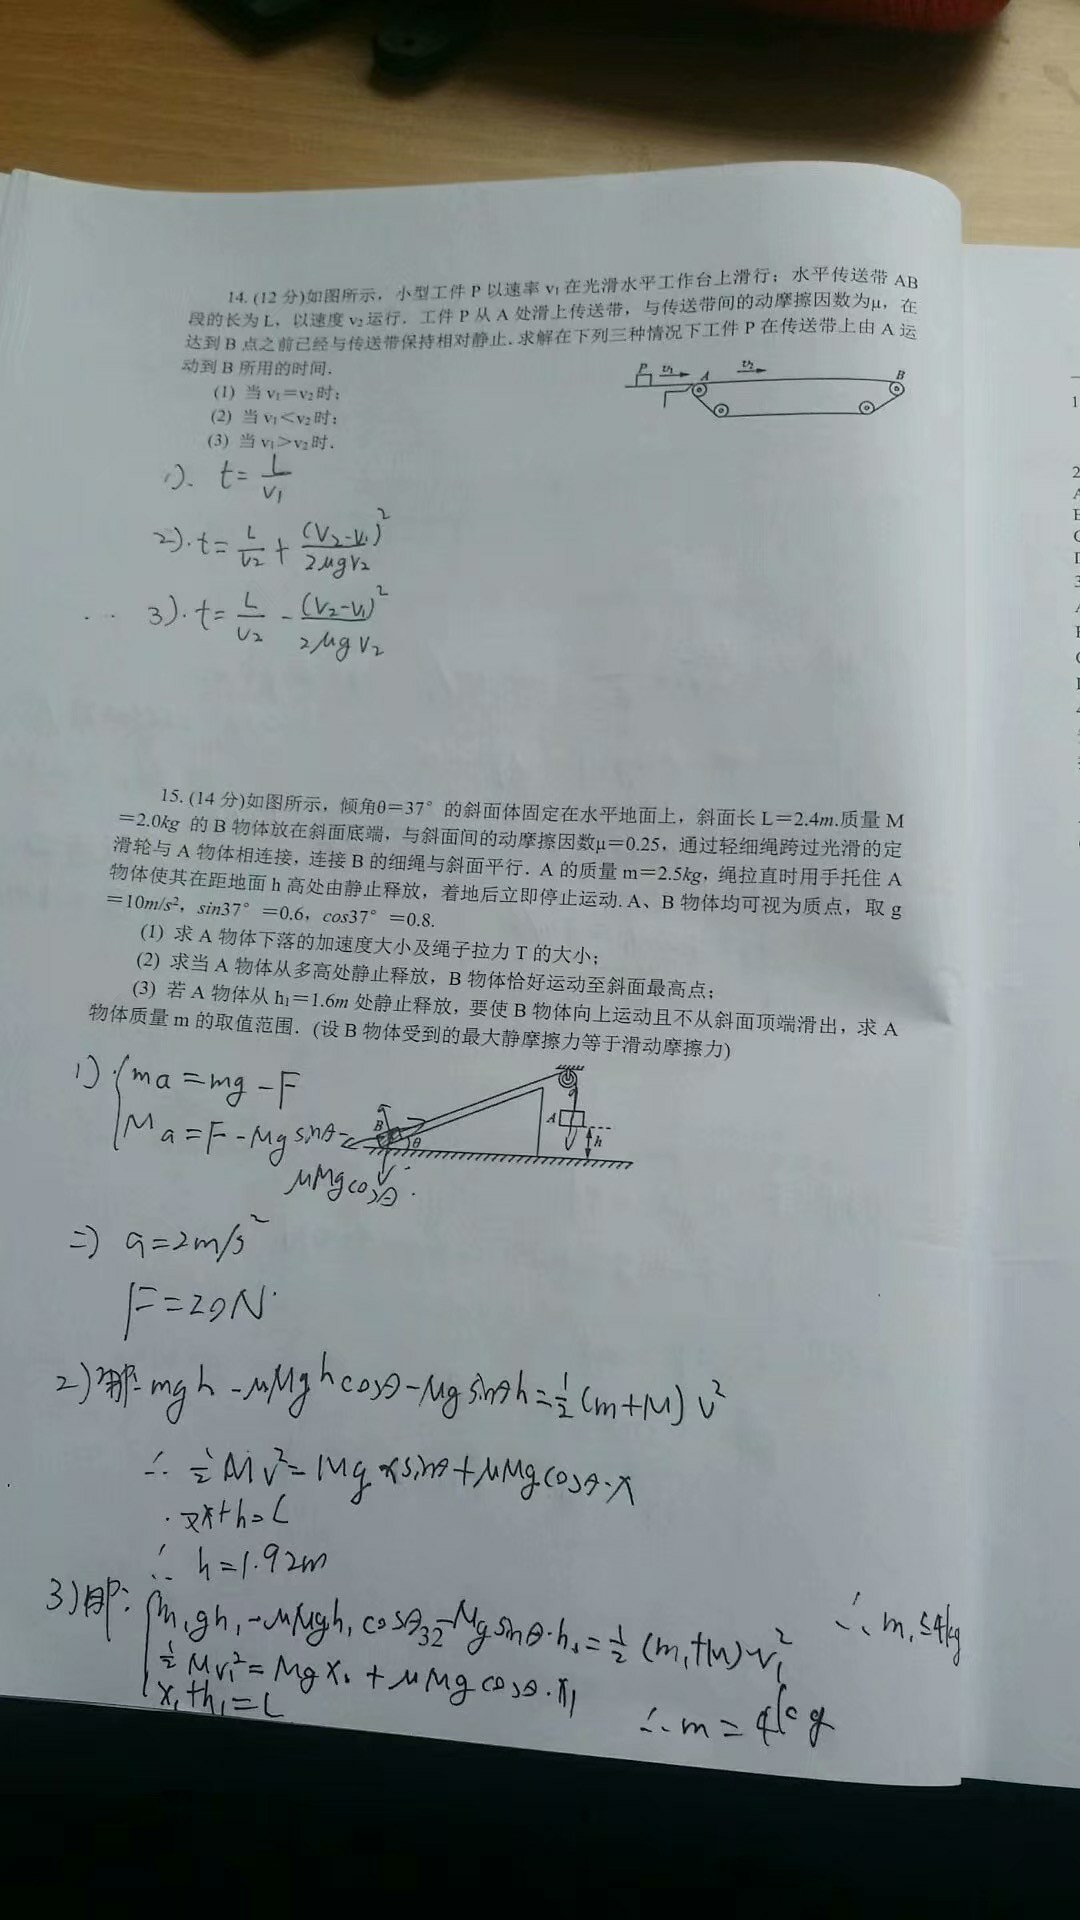 14. (12 分)如图所示，小型工件 P 以速率 v₁ 在光滑水平工作台上滑行；水平传送带 AB
段的长为 L，以速度 v₂ 运行．工件 P 从 A 处滑上传送带，与传送带间的动摩擦因数为μ，在
达到 B 点之前已经与传送带保持相对静止．求解在下列三种情况下工件 P 在传送带上由 A 运
动到 B 所用的时间．
P v₁ A v₂ B
(1) 当 v₁＝v₂时；
(2) 当 v₁＜v₂时；
(3) 当 v₁＞v₂时．
1). t= L/V₁
2). t= L/V₂ + (V₂-V₁)²/2μgV₂
3). t= L/V₂ - (V₂-V₁)²/2μgV₂
15. (14 分)如图所示，倾角θ＝37°的斜面体固定在水平地面上，斜面长 L＝2.4m.质量 M
＝2.0kg 的 B 物体放在斜面底端，与斜面间的动摩擦因数μ＝0.25，通过轻细绳跨过光滑的定
滑轮与 A 物体相连接，连接 B 的细绳与斜面平行．A 的质量 m＝2.5kg，绳拉直时用手托住 A
物体使其在距地面 h 高处由静止释放，着地后立即停止运动．A、B 物体均可视为质点，取 g
＝10m/s²，sin37°＝0.6，cos37°＝0.8.
(1) 求 A 物体下落的加速度大小及绳子拉力 T 的大小；
(2) 求当 A 物体从多高处静止释放，B 物体恰好运动至斜面最高点；
(3) 若 A 物体从 h₁＝1.6m 处静止释放，要使 B 物体向上运动且不从斜面顶端滑出，求 A
物体质量 m 的取值范围．(设 B 物体受到的最大静摩擦力等于滑动摩擦力)
1) ma=mg-F
Ma=F-Mgsinθ-
μMgcosθ.
B θ A h
=) a=2m/s²
F=20N.
2) mgh-μMghcosθ-Mgsinθh=½(m+M)v²
∴ ½Mv²=Mgxsinθ+μMgcosθ·x
x+h=L
∴ h=1.92m
3) 即: m₁gh₁-μMgh₁cosθ-Mgsinθ·h₁=½(m₁+M)v₁²
32
½Mv₁²=Mgx₁+μMgcosθ·x₁
x₁+h₁=L
∴m=4kg
∴m₁≤4kg